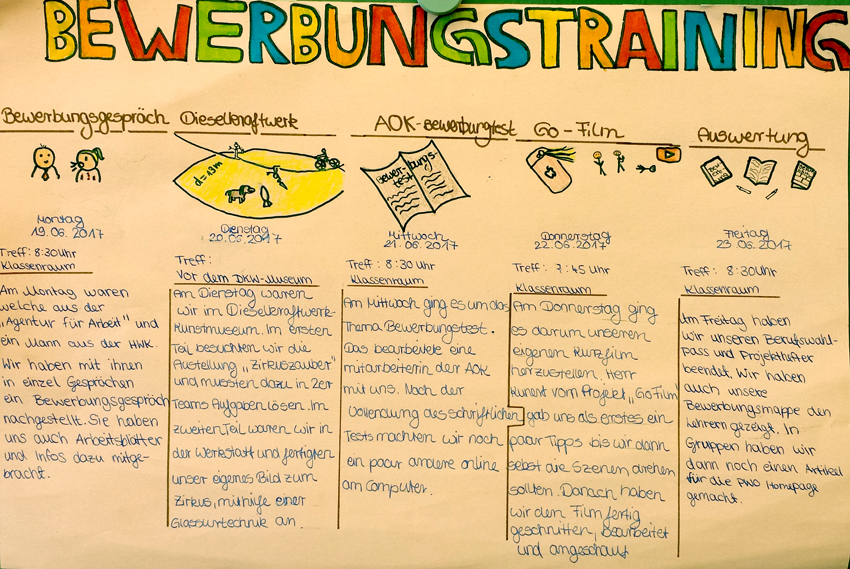 BEWERBUNGSTRAINING
Bewerbungsgespräch
Montag
19.06.2017
Treff: 8:30 Uhr
Klassenraum
Am Montag waren
welche aus der
„Agentur für Arbeit" und
ein Mann aus der HWK.
Wir haben mit ihnen
in einzel Gesprächen
ein Bewerbungsgespräch
nachgestellt. Sie haben
uns auch Arbeitsblätter
und Infos dazu mitge-
bracht.
Dieselkraftwerk
d=13m
Dienstag
20.06.2017
Treff:
Vor dem DKW-Museum
Am Dienstag waren
wir im Dieselkraftwerk-
Kunstmuseum. Im ersten
Teil besuchten wir die
Austellung „Zirkuszauber"
und mussten dazu in 2er
Teams Aufgaben lösen. Im
zweiten Teil waren wir in
der Werkstatt und fertigten
unser eigenes Bild zum
Zirkus, mithilfe einer
Glasurtechnik an.
AOK-Bewerbungtest
Bewerbungs-
test
Mittwoch
21.06.2017
Treff: 8:30 Uhr
Klassenraum
Am Mittwoch ging es um das
Thema Bewerbungstest.
Das bearbeitete eine
mitarbeiterin der AOK
mit uns. Nach der
Vollendung des schriftlichen
Tests machten wir noch
ein paar andere online
am Computer.
Go-Film
Donnerstag
22.06.2017
Treff: 7:45 Uhr
Klassenraum
Am Donnerstag ging
es darum unseren
eigenen Kurzfilm
herzustellen. Herr
Kunert vom Projekt „GoFilm"
gab uns als erstes ein
paar Tipps bis wir dann
selbst die Szenen drehen
sollten. Danach haben
wir den Film fertig
geschnitten, bearbeitet
und angeschaut
Auswertung
Freitag
23.06.2017
Treff: 8:30 Uhr
Klassenraum
Am Freitag haben
wir unseren Berufswahl-
pass und Projekthefter
beendet. Wir haben
auch unsere
Bewerbungsmappe den
Lehrern gezeigt. In
Gruppen haben wir
dann noch einen Artikel
für die PNO Homepage
gemacht.